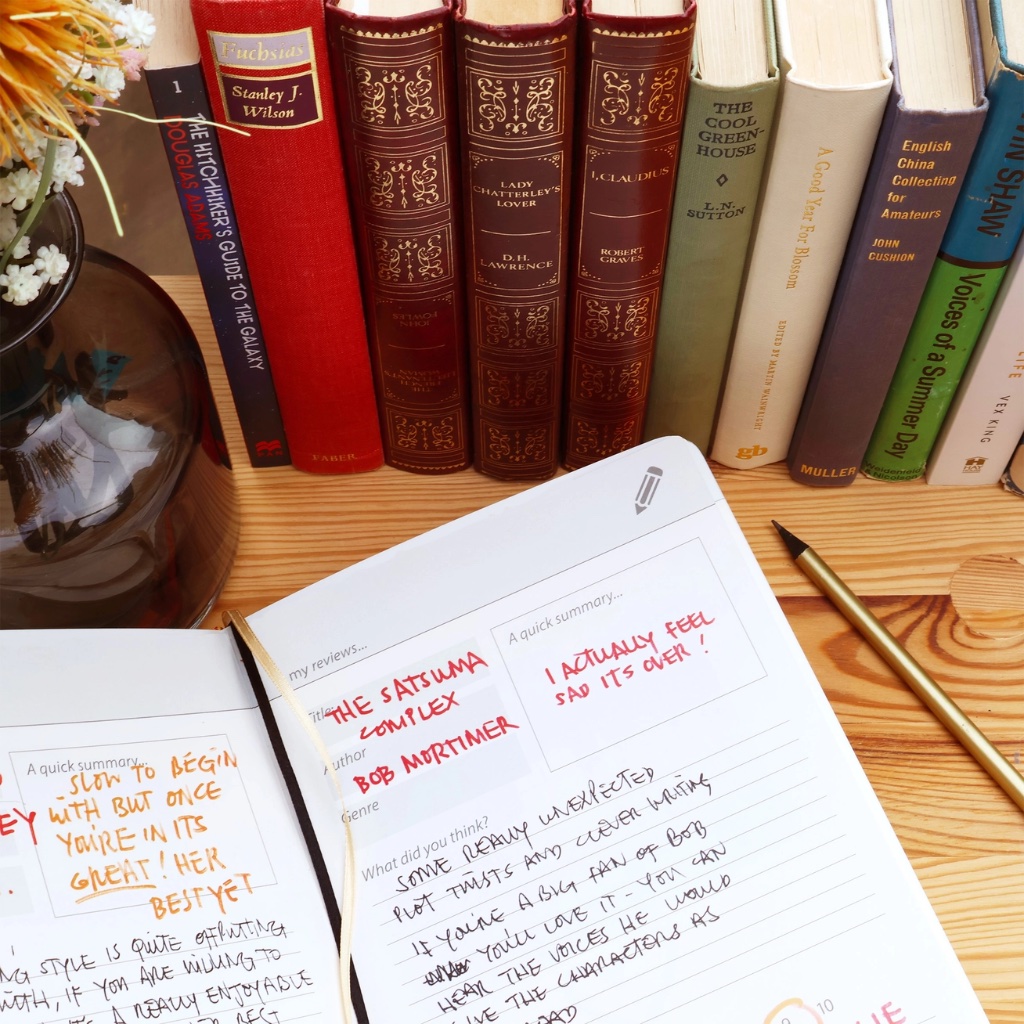 1
THE HITCHHIKER'S GUIDE TO THE GALAXY
DOUGLAS ADAMS
Fuchsias
Stanley J.
Wilson
FABER
JOHN
FOWLES
LADY
CHATTERLEY'S
LOVER
D.H.
LAWRENCE
I, CLAUDIUS
ROBERT
GRAVES
THE
COOL
GREEN-
HOUSE
L.N.
SUTTON
A Good Year For Blossom
EDITED BY MARTIN WAINWRIGHT
gb
English
China
Collecting
for
Amateurs
JOHN
CUSHION
MULLER
IN SHAW
Voices of a Summer Day
Weidenfeld
& Nicolson
LIFE
VEX KING
HAY
my reviews...
Title
THE SATSUMA
COMPLEX
Author
BOB MORTIMER
Genre
A quick summary...
I ACTUALLY FEEL
SAD ITS OVER!
What did you think?
SOME REALLY UNEXPECTED
PLOT TWISTS AND CLEVER WRITING
IF YOU'RE A BIG FAN OF BOB
YOU'LL LOVE IT - YOU CAN
HEAR THE VOICES HE WOULD
GIVE THE CHARACTERS AS
9 10
EY
A quick summary...
SLOW TO BEGIN
WITH BUT ONCE
YOU'RE IN ITS
GREAT! HER
BEST YET
NG STYLE IS QUITE OFFPUTTING
WITH, IF YOU ARE WILLING TO
A REALLY ENJOYABLE